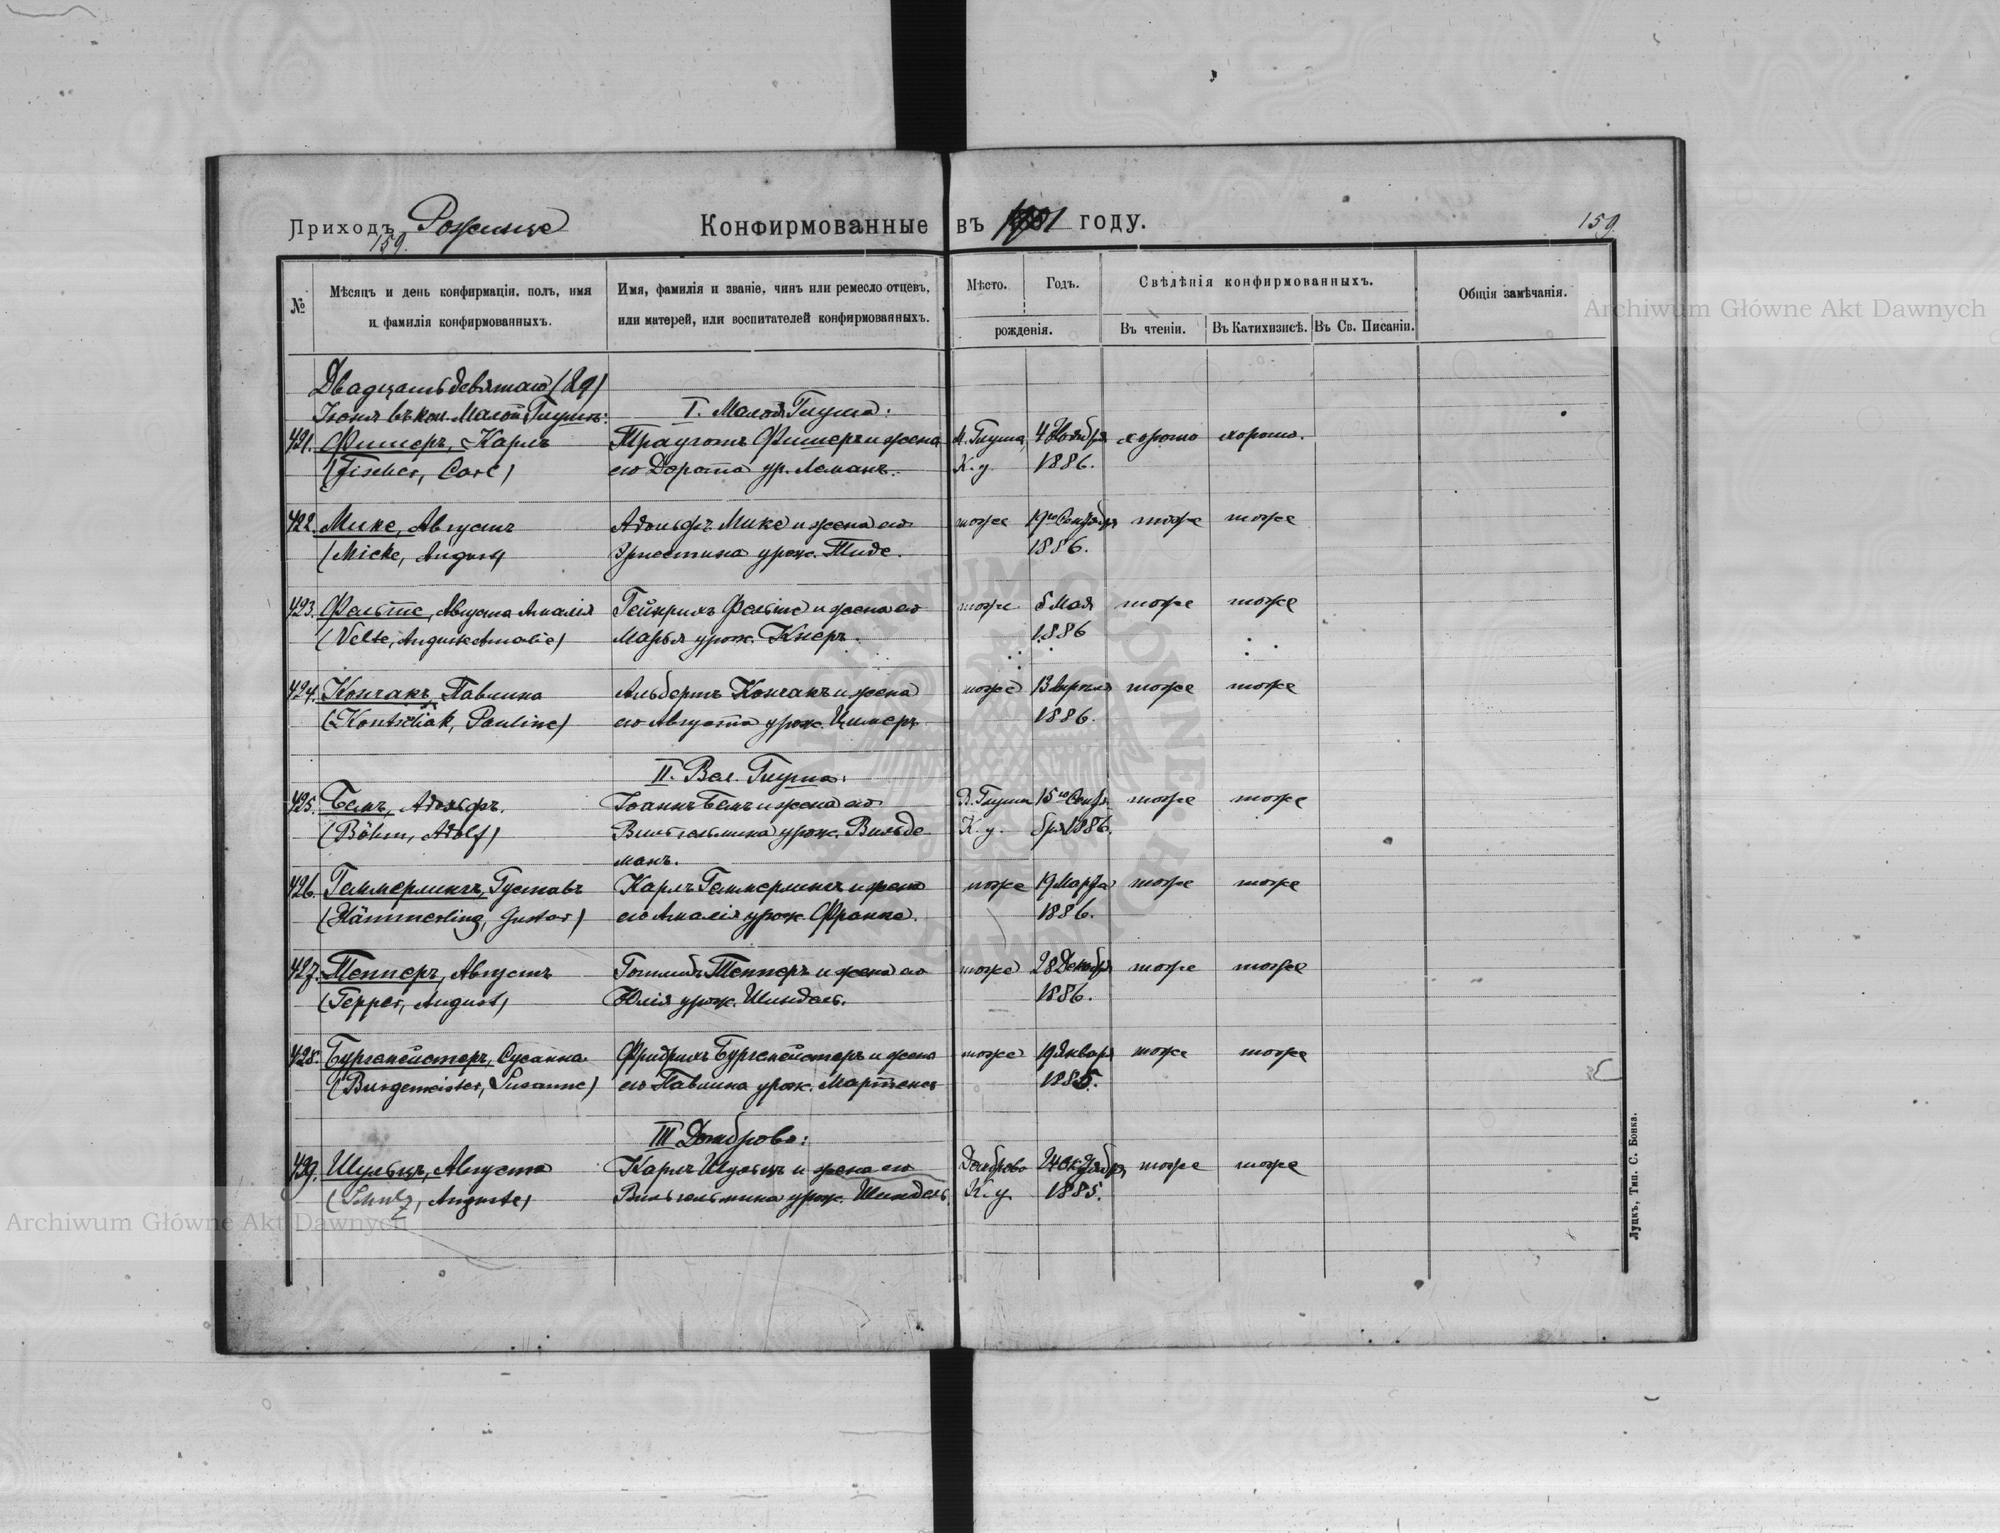 Приходъ Рожище
Конфирмованные въ 1901 году.
159.
159.
№
Мѣсяцъ и день конфирмаціи, полъ, имя
и фамилія конфирмованныхъ.
Имя, фамилія и званіе, чинъ или ремесло отцевъ,
или матерей, или воспитателей конфирмованныхъ.
Мѣсто.
Годъ.
рожденія.
Свѣдѣнія конфирмованныхъ.
Въ чтеніи.
Въ Катихизисѣ.
Въ Св. Писаніи.
Общія замѣчанія.
Двадцать девятаго (29)
Іюня въ кол. Малой Глушѣ:
I. Малая Глуша:
421. Фишеръ, Карлъ Трауготъ Фишеръ и жена М. Глуша, 4 Ноября хорошо хорошо.
(Fischer, Carl) его Дорота ур. Леманъ. К. у. 1886.
422. Мике, Августъ Адольфъ Мике и жена его тоже 19го Сентября тоже тоже
(Micke, August) Эрнестина урож. Тиде. 1886.
423. Фельте, Августа Амалія Гейнрихъ Фельте и жена его тоже 5 Мая тоже тоже
(Velte, Auguste Amalie) Марья урож. Кнеръ. 1886
424. Кончакъ, Павлина Альбертъ Кончакъ и жена тоже 13 Апрѣля тоже тоже
(Kontschak, Pauline) его Августа урож. Цимеръ 1886.
II. Вел. Глуша:
425. Бемъ, Адольфъ. Іоаннъ Бемъ и жена его В. Глуша 15го Сентя- тоже тоже
(Böhm, Adolf) Вильгельмина урож. Вильде- К. у. бря 1886.
манъ.
426. Геммерлингъ, Густавъ Карлъ Геммерлингъ и жена тоже 19 Марта тоже тоже
(Hämmerling, Gustav) его Амалія урож. Франке. 1886.
427. Тепперъ, Августъ Готлибъ Тепперъ и жена его тоже 28 Декабря тоже тоже
(Tepper, August) Юлія урож. Шиндель. 1886.
428. Бургемейстеръ, Сусанна Фридрихъ Бургемейстеръ и жена тоже 19 Января тоже тоже
(Burgemeister, Susanne) его Павлина урож. Мартенсъ 1885.
III Домброво:
429. Шульцъ, Августа Карлъ Шульцъ и жена его Домброво 24 Октября тоже тоже
(Schulz, Auguste) Вильгельмина урож. Шиндель. К. у. 1885.
Луцкъ, Тип. С. Бонка.
Archiwum Główne Akt Dawnych
Archiwum Główne Akt Dawnych
ARCHIWUM GŁÓWNE AKT DAWNYCH